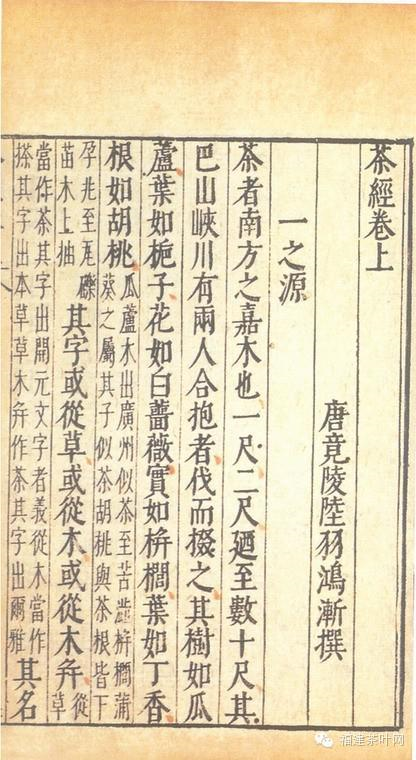 茶經卷上
唐竟陵陸羽鴻漸撰
一之源
茶者南方之嘉木也一尺二尺廼至數十尺其
巴山峽川有兩人合抱者伐而掇之其樹如瓜
蘆葉如梔子花如白薔薇實如栟櫚葉如丁香
根如胡桃
瓜蘆木出廣州似茶至苦澁栟櫚蒲
葵之屬其子似茶胡桃與茶根皆下
孕兆至瓦礫
苗木上抽
其字或從草或從木或從木并
從
草
當作茶其字出開元文字者義從木當作
搽其字出本草草木并作茶其字出爾雅
其名
福建茶叶网